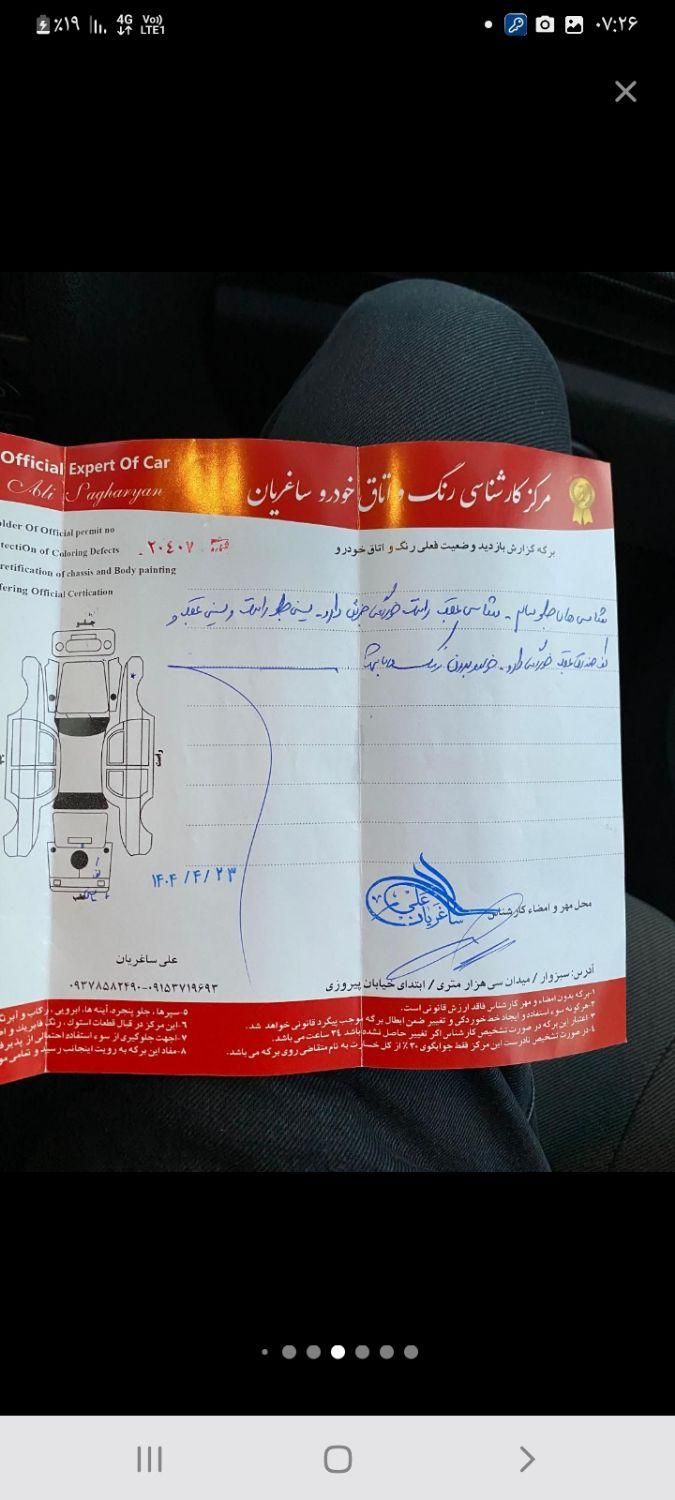 ٪۱۹ 4G Vo) LTE1
۰۷:۲۶
Official Expert Of Car
Ali Sagharyan
مرکز کارشناسی رنگ و اتاق خودرو ساغریان
older Of Official permit no
tectiOn of Coloring Defects
retification of chassis and Body painting
fering Official Certication
شماره ۲۰۴۰۷
برگه گزارش بازدید و ضعیت فعلی رنگ و اتاق خودرو
شاسی های جلو سالم - شاسی عقب راست خوردگی جزئی دارد - سینی جلو راست و سینی عقب و
کف صندوق عقب خوردگی دارد - خودرو بدون رنگ میباشد
جلو
راست
عقب
۱۴۰۴/۴/۲۳
علی ساغریان
محل مهر و امضاء کارشناس
علی ساغریان
۰۹۳۷۸۵۸۲۴۹۰-۰۹۱۵۳۷۱۹۶۹۳
آدرس: سبزوار / میدان سی هزار متری / ابتدای خیابان پیروزی
۱-برگه بدون امضاء و مهر کارشناس فاقد ارزش قانونی است.
۲-هرگونه سوء استفاده و ایجاد خط خوردگی و تغییر ضمن ابطال برگه موجب پیگرد قانونی خواهد شد.
۳-اعتبار این برگه در صورت تشخیص کارشناس اگر تغییر حاصل نشده باشد ۲۴ ساعت می باشد.
۴-در صورت تشخیص نادرست این مرکز فقط جوابگوی ۳۰٪ از کل خسارت به نام متقاضی روی برگه می باشد.
۵-سپرها، جلو پنجره، آینه ها، ابرویی، رکاب و
۶-این مرکز در قبال قطعات استوک، رنگ فابریک و
۷-جهت جلوگیری از سوء استفاده احتمالی از
۸-مفاد این برگه به رویت اینجانب رسید و تمامی